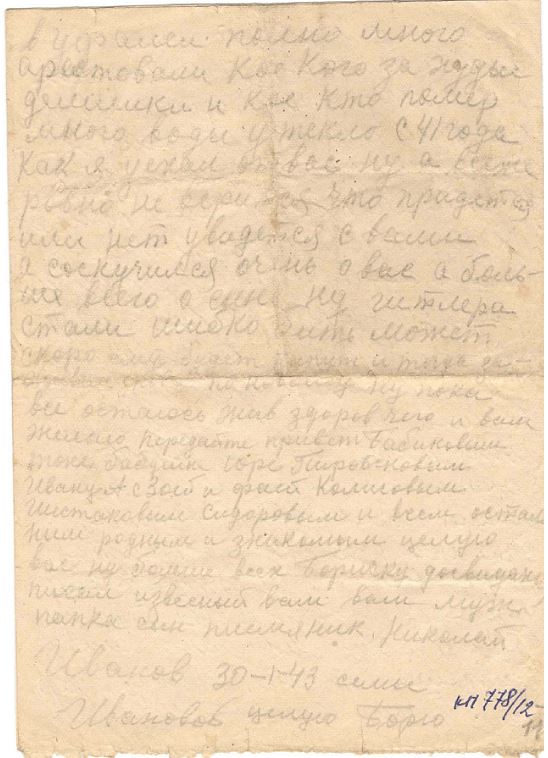 в уфалеи полно много
арестовали Кое Кого за худые
делишки и Кое Кто помер
много воды утекло с 41 года
Как я уехал от вас ну а
ровно не верится что придется
или нет увидется с вами
а соскучился очень о вас а боль-
ше всего о сыне ну гитлера
стали шибко бить может
скоро ему будет капут и тогда за-
по новому ну пока
все осталось жив здоров чего и вам
желаю передайте привет Бабиновым
бабушке
Ивану
и всем осталь
ним родным и знакомым целую
вас ну больше всех Бориску досвидания
писал извесный вам ваш муж
папка сын племяник. Николай
Иванов 30-1-43 семье
Ивановов целую Борю
КП 778/12
11